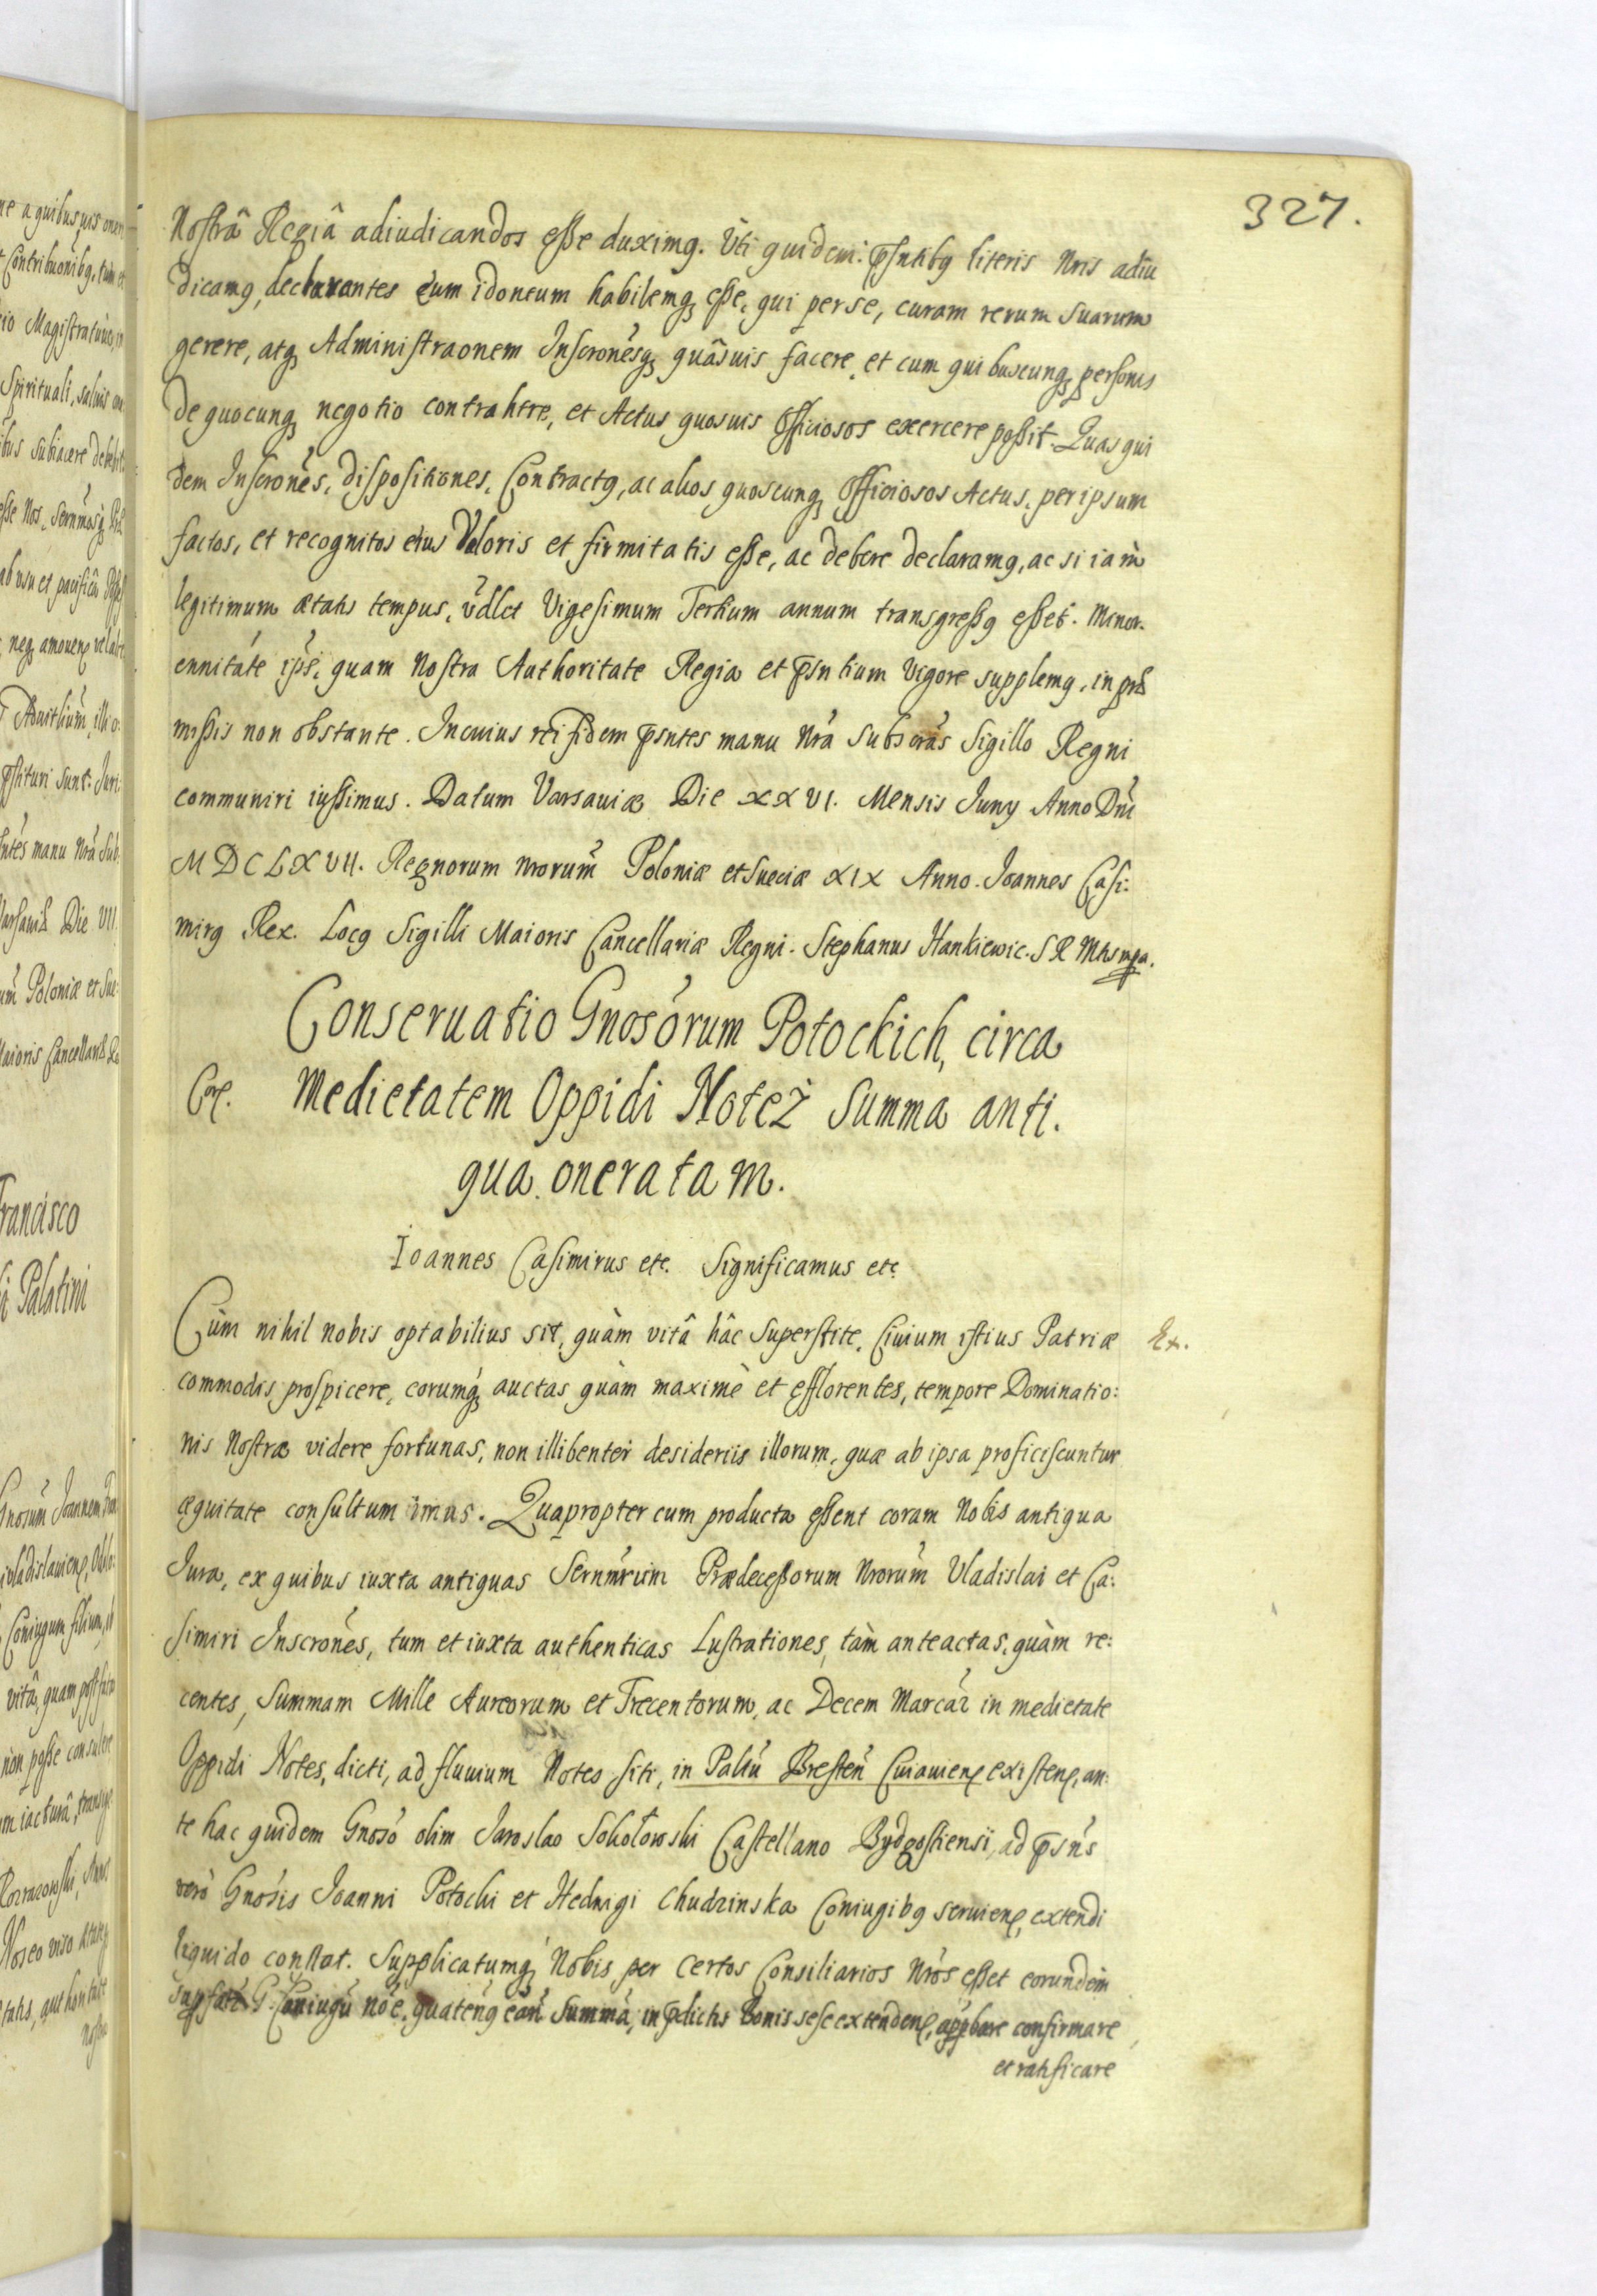 327.
Nostrâ Regiâ adiudicandos esse duximꝰ. Uti quidem pñtibꝰ literis Nris adiu
dicamꝰ, declarantes eum idoneum habilemq₃ esse, qui per se, curam rerum suarum
gerere, atq₃ Administraonem Inscronesq₃ quasuis facere, et cum quibuscunq₃ personis
de quocunq₃ negotio contrahere, et Actus quosuis Officiosos exercere possit. Quas qui
dem Inscrones, dispositiones, Contractꝰ, ac alios quoscunq₃ Officiosos Actus, per ipsum
factos, et recognitos eius Valoris et firmitatis esse, ac debere declaramꝰ, ac si iam
legitimum ætatis tempus, vdlct Vigesimum Tertium annum transgressꝰ esset. Minor-
ennitate ipsi, quam Nostra Authoritate Regia et psntium vigore supplemꝰ, in præ
missis non obstante. In cuius rei fidem psntes manu Nra subscras Sigillo Regni
communiri iussimus. Datum Varsauiæ Die XXVI. Mensis Juny Anno Dni
MDCLXVII. Regnorum nrorum Poloniæ et Sueciæ XIX Anno. Joannes Casi:
mirꝰ Rex. Locꝰ Sigilli Maioris Cancellariæ Regni. Stephanus Hankiewic. S R Mtis mpa.
Conseruatio Gnosorum Potockich, circa
Medietatem Oppidi Noteż summa anti.
qua oneratam.
Ioannes Casimirus etc. Significamus etc
Cùm nihil nobis optabilius sit, quàm vitâ hâc Superstite, Ciuium istius Patriæ
Ex.
commodis prospicere, eorumq₃ auctas quàm maximè et efflorentes, tempore Dominatio:
nis Nostræ videre fortunas, non illibenter desideriis illorum, quæ ab ipsa proficiscuntur
æquitate consultum imus. Quapropter cum producta essent coram Nobis antiqua
Iura, ex quibus iuxta antiquas Sernmrum Prædecessorum Nrorum Vladislai et Ca:
simiri Inscrones, tum et iuxta authenticas Lustrationes, tàm anteactas, quàm re:
centes, Summam Mille Aureorum et Trecentorum, ac Decem Marcar in medietate
Oppidi Notes, dicti, ad fluuium Notes siti, in Paltu Bresten Cuiauien existen, an:
te hac quidem Gnoso olim Jaroslao Sokołowski Castellano Bydgostiensi, ad psns
verò Gnosis Joanni Potocki et Hedwigi Chudzinska Coniugibꝰ seruien, extendi
liquido constat. Supplicatumq₃ Nobis per certos Consiliarios Nros esset eorundem
supfat G. Coniugu noe, quatenꝰ ean Summa, in pdictis Bonis sese extenden, appbare confirmare
et ratificare